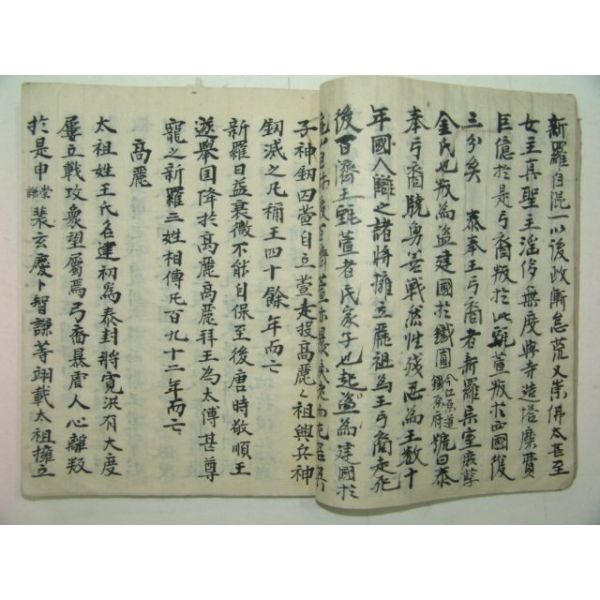 新羅自混一以後政漸怠荒又崇佛太甚至
女主真聖王淫侈無度興寺造塔糜費
巨億於是弓裔叛於北甄萱叛於西國復
三分矣 泰奉王弓裔者新羅宗室庶孼
金氏也叛為盜建國於鐵圓今江原道鐵原府號曰泰
奉弓裔驍勇善戰然性殘忍為王數十
年國人離之諸將擁立麗祖為王弓裔走死
後百濟王甄萱者民家子也起盜為建國於
子神釼囚萱自立萱走投高麗麗祖興兵神
釼滅之凡稱王四十餘年而亡
新羅日益衰微不能自保至後唐時敬順王
遂舉國降於高麗拜王為太傅甚尊
寵之新羅三姓相傳凡百九十二年而亡
高麗
太祖姓王氏名建初為泰封將寬洪有大度
屢立戰攻衆望屬焉弓裔暴虐人心離叛
於是申崇謙裴玄慶卜智謙等翊載太祖擁立